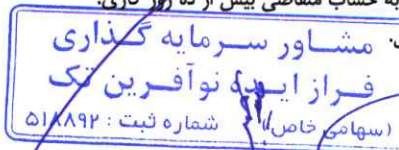 به حساب متقاضی بیش از ده روز کاری.
مشاور سرمایه گذاری
فراز ایده نوآفرین تک
(سهامی خاص) شماره ثبت : ۵۱۸۸۹۲